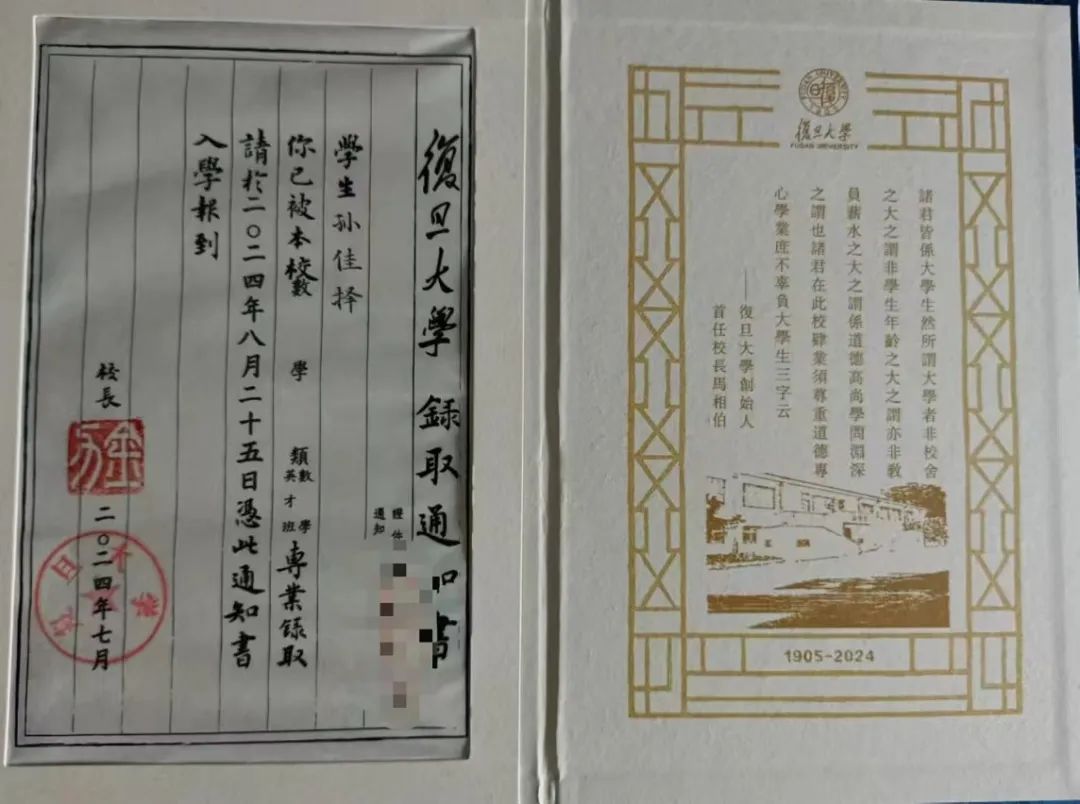 復旦大學 錄取通知書
證件
通知
學生孙佳择
你已被本校數學類數學英才班專業錄取
請於二〇二四年八月二十五日憑此通知書
入學報到
校長
金力
二〇二四年七月
復旦大學
FUDAN UNIVERSITY
1905
復旦大學
FUDAN UNIVERSITY
諸君皆係大學生然所謂大學者非校舍
之大之謂非學生年齡之大之謂亦非教
員薪水之大之謂係道德高尚學問淵深
之謂也諸君在此校肄業須尊重道德專
心學業庶不辜負大學生三字云
——復旦大學創始人
首任校長馬相伯
1905-2024